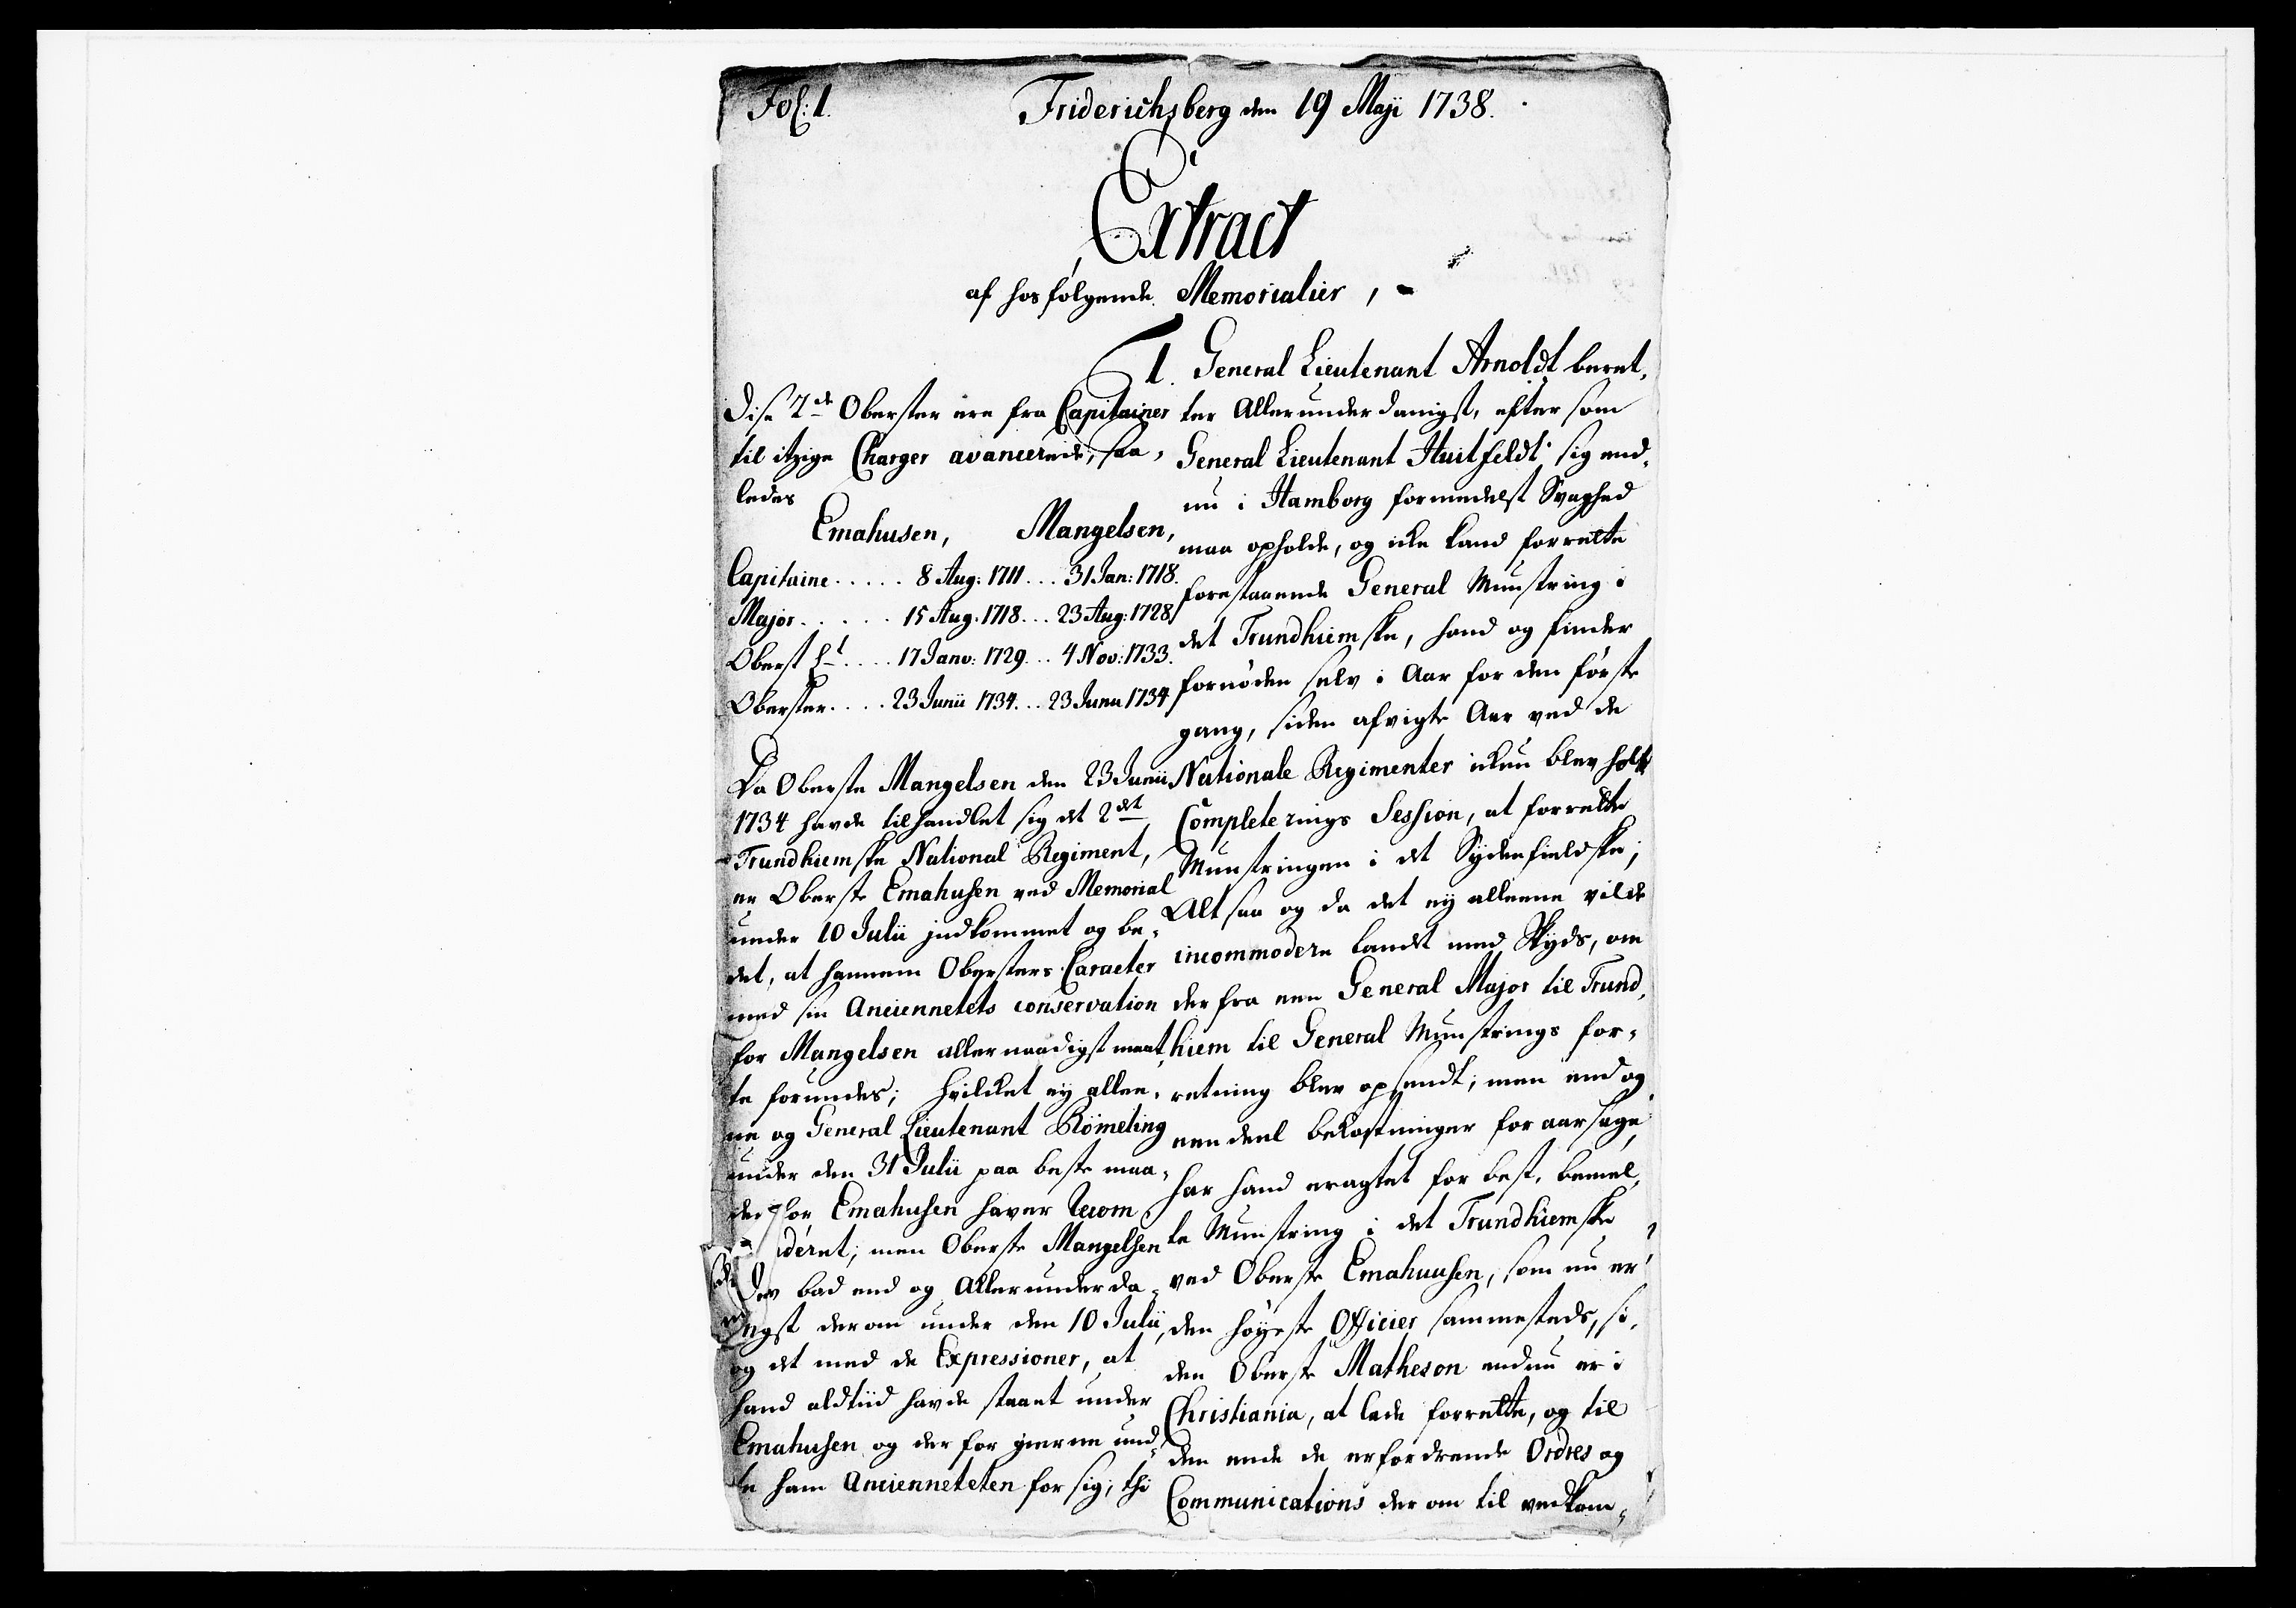 Fol: 1.
Friderichsberg den 19 Maji 1738.
Extract
af hosfølgende Memorialier,
1. General Lieutenant Arnoldt beret,
ter Allerunderdanigst, eftersom
General Lieutenant Huitfeldt sig end,
nu i Hamborg formedelst Svaghed
maa opholde, og icke kand forrette
forestaaende General Munstring i
det Trundhiemske, hand og finder
fornøden selv i Aar for den første
gang, siden afvigte Aar ved de
Nationale Regimenter ickun blev holt
Completerings Session, at forrette
Munstringen i det Sydenfieldske;
Alt saa og da det ey alleene vilde
incommodere landet med Skyds, om
derfra een General Major til Trund,
hiem til General Munstrings for,
retning blev opsendt; men end og
een deel bekostninger foraarsage
har hand eragtet for best, bemel,
te Munstring i det Trundhiemske
ved Oberste Emahuusen, som nu er
den høyeste Officier sammesteds, si,
den Oberste Matheson endnu er i
Christiania, at lade forrette, og til
den ende de erfordrende Ordres og
Communications derom til vedkom,
Disse 2de Oberster ere fra Capitainer
til itzige Charger avancerede, saa,
ledes
Emahusen, Mangelsen,
Capitaine ..... 8 Aug: 1711 ... 31 Jan: 1718.
Major ..... 15 Aug. 1718 ... 23 Aug: 1728
Oberst Lt .... 17 Janv: 1729 ... 4 Nov: 1733.
Oberster .... 23 Junii 1734 ... 23 Junii 1734
Da Oberste Mangelsen den 23 Junii
1734 havde tilhandlet sig det 2det
Trundhiemske National Regiment,
er Oberste Emahusen ved Memorial
under 10 Julii indkommet og be,
det, at hannem Obersters Caracter
med sin Anciennetets conservation
for Mangelsen allernaadigst maat,
te forundes; hvilcket ey allee,
ne og General Lieutenant Römeling
under den 31 Julii paa beste maa,
de for Emahusen haver recom
deret; men Oberste Mangelsen
bad end og Allerunderda,
nigst derom under den 10 Julii,
og det med de Expressioner, at
hand aldtiid havde staaet under
Emahusen og derfor gierne und,
te ham Ancienneteten for sig; thi